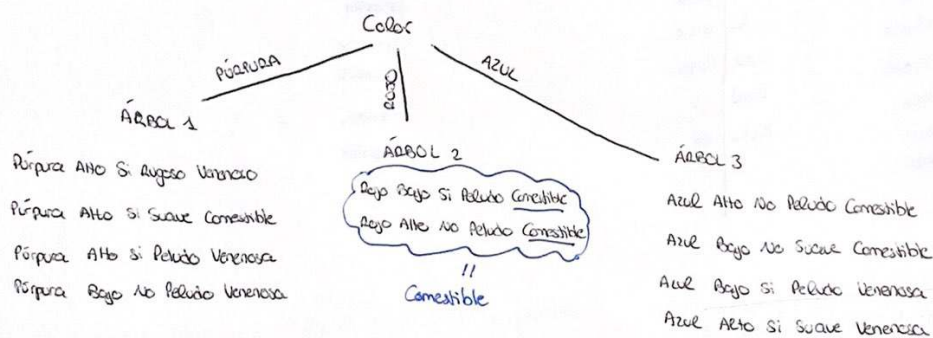 Color
PÚRPURA
ROJO
AZUL
ÁRBOL 1
Púrpura Alto Si Rugoso Venenoso
Púrpura Alto Si Suave Comestible
Púrpura Alto Si Peludo Venenosa
Púrpura Bajo No Peludo Venenosa
ÁRBOL 2
Rojo Bajo Si Peludo Comestible
Rojo Alto No Peludo Comestible
Comestible
ÁRBOL 3
Azul Alto No Peludo Comestible
Azul Bajo No Suave Comestible
Azul Bajo Si Peludo Venenosa
Azul Alto Si Suave Venenosa